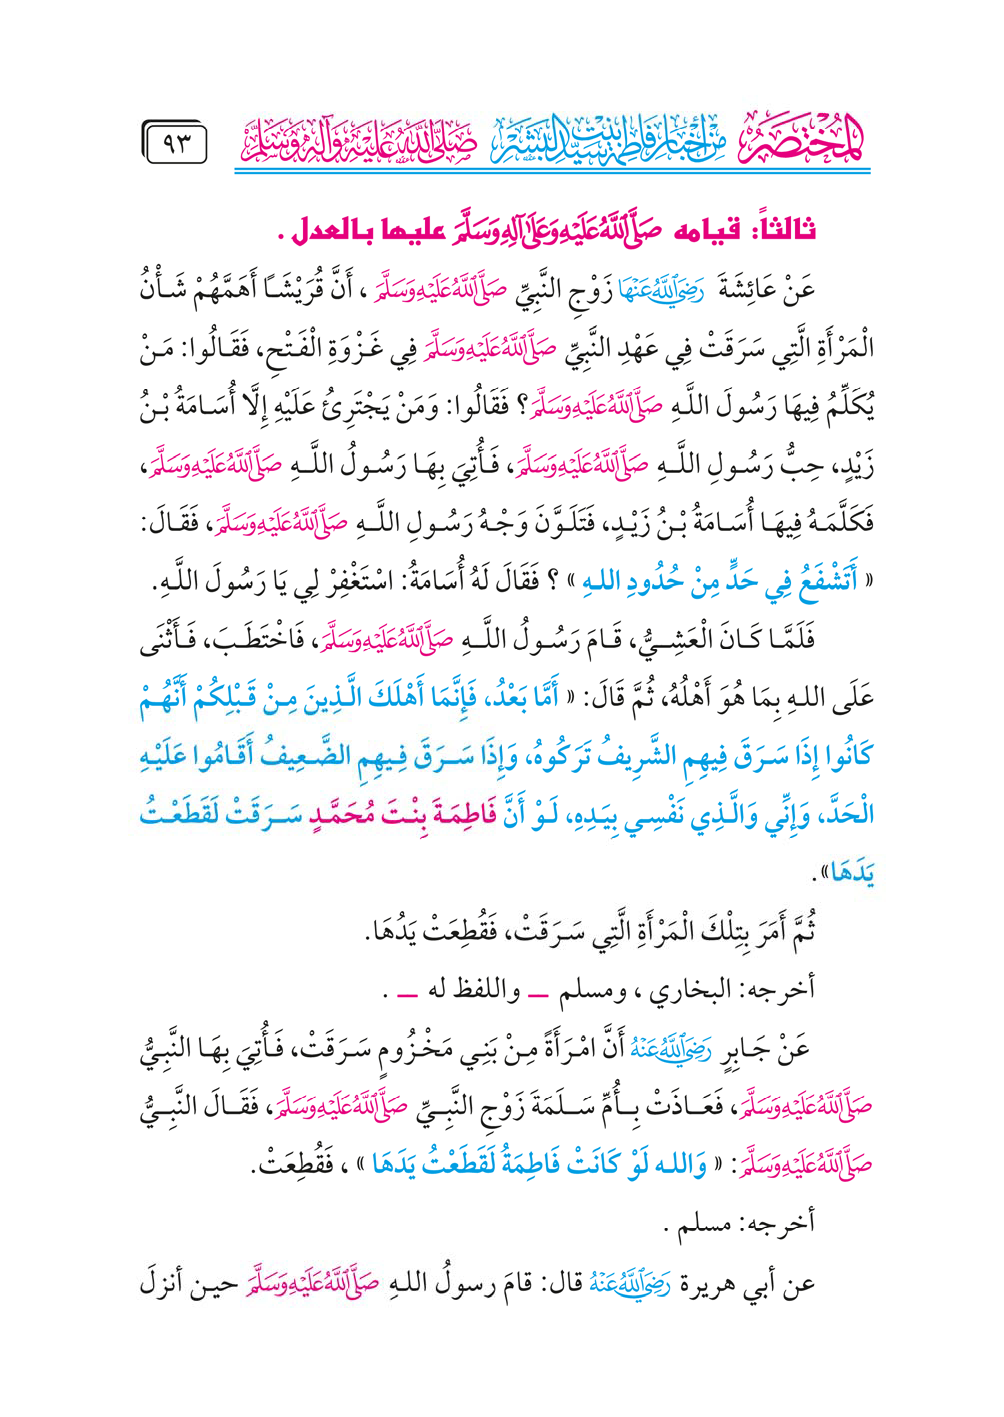 المختصر من أخبار فاطمة بنت سيد البشر صلى الله عليه وآله وسلم ٩٣
ثالثاً: قيامه صَلَّى اللَّهُ عَلَيْهِ وَعَلَى آلِهِ وَسَلَّمَ عليها بالعدل .
عَنْ عَائِشَةَ رَضِيَ اللَّهُ عَنْهَا زَوْجِ النَّبِيِّ صَلَّى اللَّهُ عَلَيْهِ وَسَلَّمَ ، أَنَّ قُرَيْشًا أَهَمَّهُمْ شَأْنُ
الْمَرْأَةِ الَّتِي سَرَقَتْ فِي عَهْدِ النَّبِيِّ صَلَّى اللَّهُ عَلَيْهِ وَسَلَّمَ فِي غَزْوَةِ الْفَتْحِ، فَقَالُوا: مَنْ
يُكَلِّمُ فِيهَا رَسُولَ اللَّهِ صَلَّى اللَّهُ عَلَيْهِ وَسَلَّمَ؟ فَقَالُوا: وَمَنْ يَجْتَرِئُ عَلَيْهِ إِلَّا أُسَامَةُ بْنُ
زَيْدٍ، حِبُّ رَسُولِ اللَّهِ صَلَّى اللَّهُ عَلَيْهِ وَسَلَّمَ، فَأُتِيَ بِهَا رَسُولُ اللَّهِ صَلَّى اللَّهُ عَلَيْهِ وَسَلَّمَ،
فَكَلَّمَهُ فِيهَا أُسَامَةُ بْنُ زَيْدٍ، فَتَلَوَّنَ وَجْهُ رَسُولِ اللَّهِ صَلَّى اللَّهُ عَلَيْهِ وَسَلَّمَ، فَقَالَ:
« أَتَشْفَعُ فِي حَدٍّ مِنْ حُدُودِ اللهِ » ؟ فَقَالَ لَهُ أُسَامَةُ: اسْتَغْفِرْ لِي يَا رَسُولَ اللَّهِ.
فَلَمَّا كَانَ الْعَشِيُّ، قَامَ رَسُولُ اللَّهِ صَلَّى اللَّهُ عَلَيْهِ وَسَلَّمَ، فَاخْتَطَبَ، فَأَثْنَى
عَلَى اللهِ بِمَا هُوَ أَهْلُهُ، ثُمَّ قَالَ: « أَمَّا بَعْدُ، فَإِنَّمَا أَهْلَكَ الَّذِينَ مِنْ قَبْلِكُمْ أَنَّهُمْ
كَانُوا إِذَا سَرَقَ فِيهِمِ الشَّرِيفُ تَرَكُوهُ، وَإِذَا سَرَقَ فِيهِمِ الضَّعِيفُ أَقَامُوا عَلَيْهِ
الْحَدَّ، وَإِنِّي وَالَّذِي نَفْسِي بِيَدِهِ، لَوْ أَنَّ فَاطِمَةَ بِنْتَ مُحَمَّدٍ سَرَقَتْ لَقَطَعْتُ
يَدَهَا».
ثُمَّ أَمَرَ بِتِلْكَ الْمَرْأَةِ الَّتِي سَرَقَتْ، فَقُطِعَتْ يَدُهَا.
أخرجه: البخاري ، ومسلم ـــ واللفظ له ـــ .
عَنْ جَابِرٍ رَضِيَ اللَّهُ عَنْهُ أَنَّ امْرَأَةً مِنْ بَنِي مَخْزُومٍ سَرَقَتْ، فَأُتِيَ بِهَا النَّبِيُّ
صَلَّى اللَّهُ عَلَيْهِ وَسَلَّمَ، فَعَاذَتْ بِأُمِّ سَلَمَةَ زَوْجِ النَّبِيِّ صَلَّى اللَّهُ عَلَيْهِ وَسَلَّمَ، فَقَالَ النَّبِيُّ
صَلَّى اللَّهُ عَلَيْهِ وَسَلَّمَ: « وَالله لَوْ كَانَتْ فَاطِمَةُ لَقَطَعْتُ يَدَهَا » ، فَقُطِعَتْ.
أخرجه: مسلم .
عن أبي هريرة رَضِيَ اللَّهُ عَنْهُ قال: قامَ رسولُ اللهِ صَلَّى اللَّهُ عَلَيْهِ وَسَلَّمَ حين أنزلَ